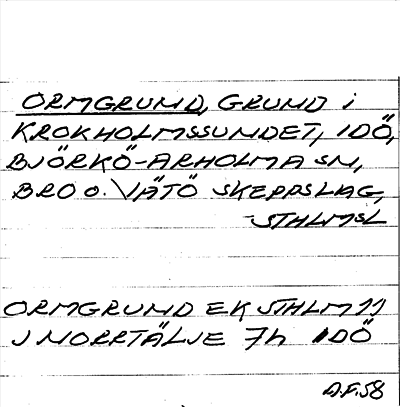 ORMGRUND, GRUND i
KROKHOLMSSUNDET, IDÖ,
BJÖRKÖ-ARHOLMA SN,
BRO O. VÄTÖ SKEPPSLAG,
STHLMSL
ORMGRUND EK STHLM 11
J NORRTÄLJE 7h IDÖ
A.F.58